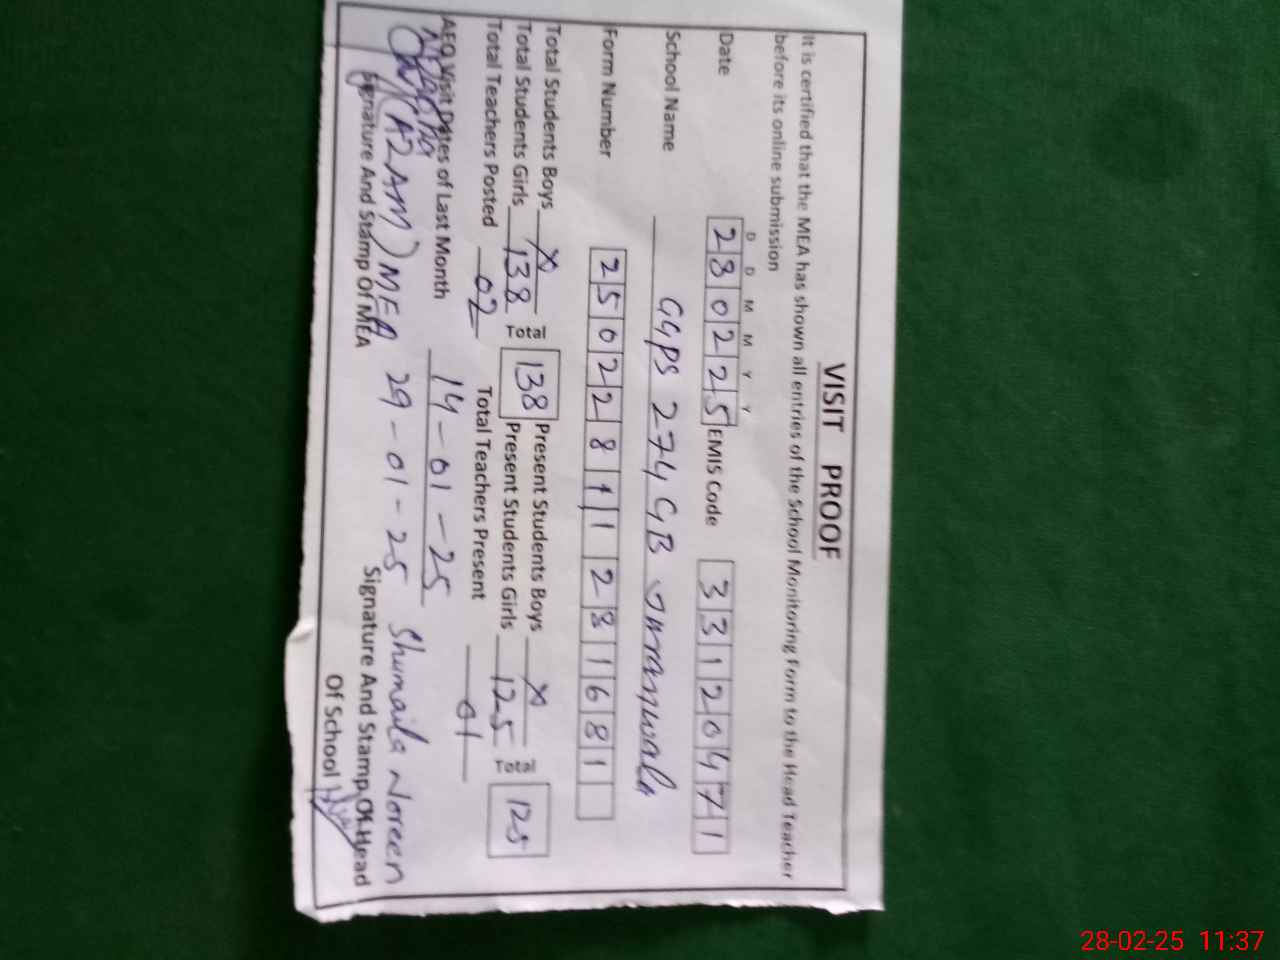 VISIT PROOF
It is certified that the MEA has shown all entries of the School Monitoring Form to the Head Teacher
before its online submission
D D M M Y Y
Date 280225 EMIS Code 33120471
School Name GGPS 274 GB Imranwala
Form Number 25022811281681
Total Students Boys X Total 138 Present Students Boys X Total 125
Total Students Girls 138 Present Students Girls 125
Total Teachers Posted 02 Total Teachers Present 01
AEO Visit Dates of Last Month 14-01-25
29-01-25 Shumaila Noreen
(AZAM) MEA
Signature And Stamp Of MEA Signature And Stamp Of Head
Of School
28-02-25 11:37